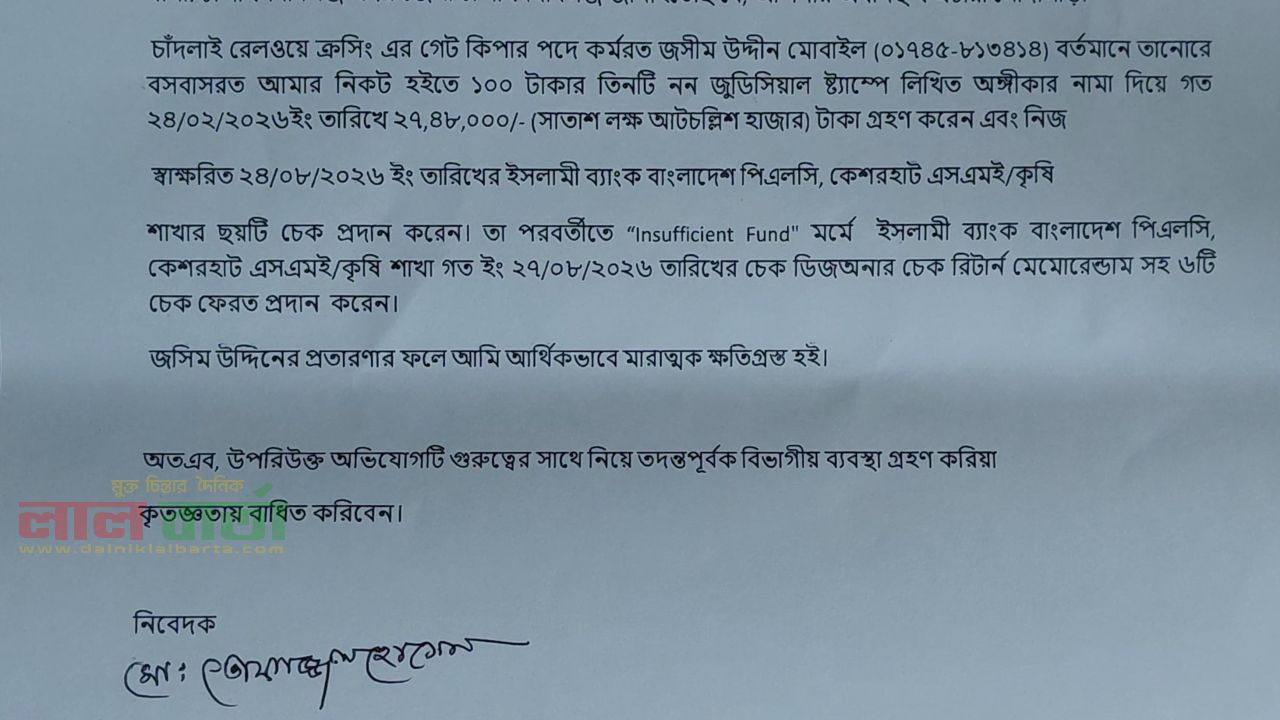 চাঁদলাই রেলওয়ে ক্রসিং এর গেট কিপার পদে কর্মরত জসীম উদ্দীন মোবাইল (০১৭৪৫-৮১৩৪১৪) বর্তমানে তানোরে
বসবাসরত আমার নিকট হইতে ১০০ টাকার তিনটি নন জুডিসিয়াল ষ্ট্যাম্পে লিখিত অঙ্গীকার নামা দিয়ে গত
২৪/০২/২০২৬ইং তারিখে ২৭,৪৮,০০০/- (সাতাশ লক্ষ আটচল্লিশ হাজার) টাকা গ্রহণ করেন এবং নিজ
স্বাক্ষরিত ২৪/০৮/২০২৬ ইং তারিখের ইসলামী ব্যাংক বাংলাদেশ পিএলসি, কেশরহাট এসএমই/কৃষি
শাখার ছয়টি চেক প্রদান করেন। তা পরবর্তীতে “Insufficient Fund" মর্মে ইসলামী ব্যাংক বাংলাদেশ পিএলসি,
কেশরহাট এসএমই/কৃষি শাখা গত ইং ২৭/০৮/২০২৬ তারিখের চেক ডিজঅনার চেক রিটার্ন মেমোরেন্ডাম সহ ৬টি
চেক ফেরত প্রদান করেন।
জসিম উদ্দিনের প্রতারণার ফলে আমি আর্থিকভাবে মারাত্মক ক্ষতিগ্রস্ত হই।
অতএব, উপরিউক্ত অভিযোগটি গুরুত্বের সাথে নিয়ে তদন্তপূর্বক বিভাগীয় ব্যবস্থা গ্রহণ করিয়া
কৃতজ্ঞতায় বাধিত করিবেন।
মুক্ত চিন্তার দৈনিক
লাল বার্তা
www.dainiklalbarta.com
নিবেদক
মো: তোফাজ্জুল হোসেন